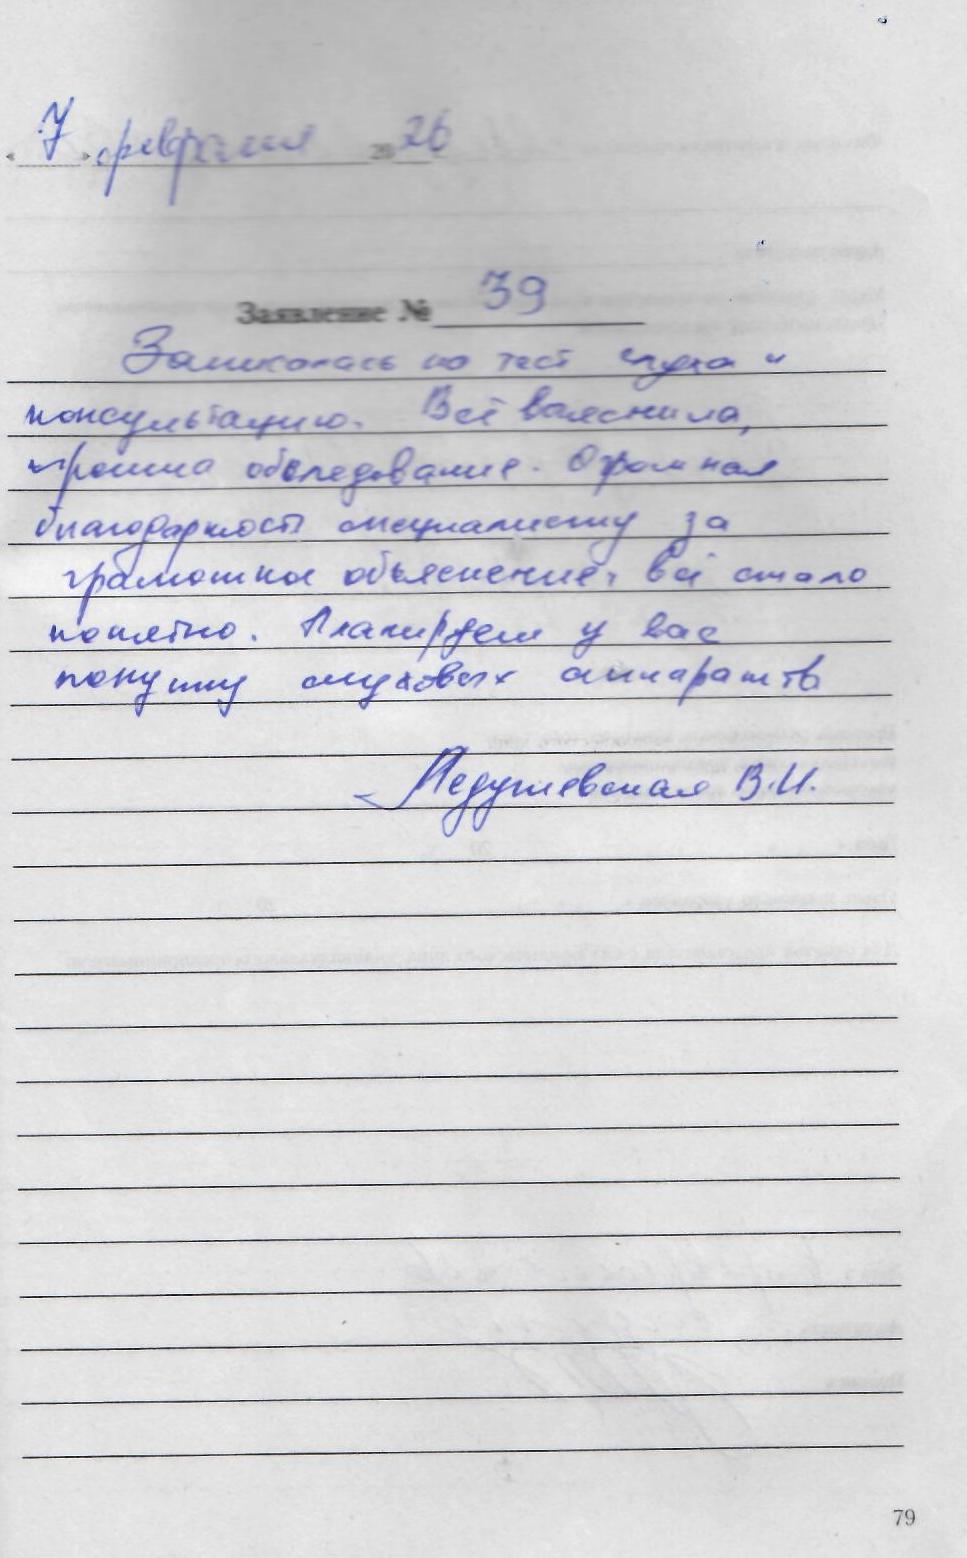 « 7 » февраля 2026
Заявление № 39
Записалась на тест слуха и
консультацию. Всё выяснила,
прошла обследование. Огромная
благодарность специалисту за
грамотное объяснение, всё стало
понятно. Планируем у вас
покупку слуховых аппаратов
В.И.
79